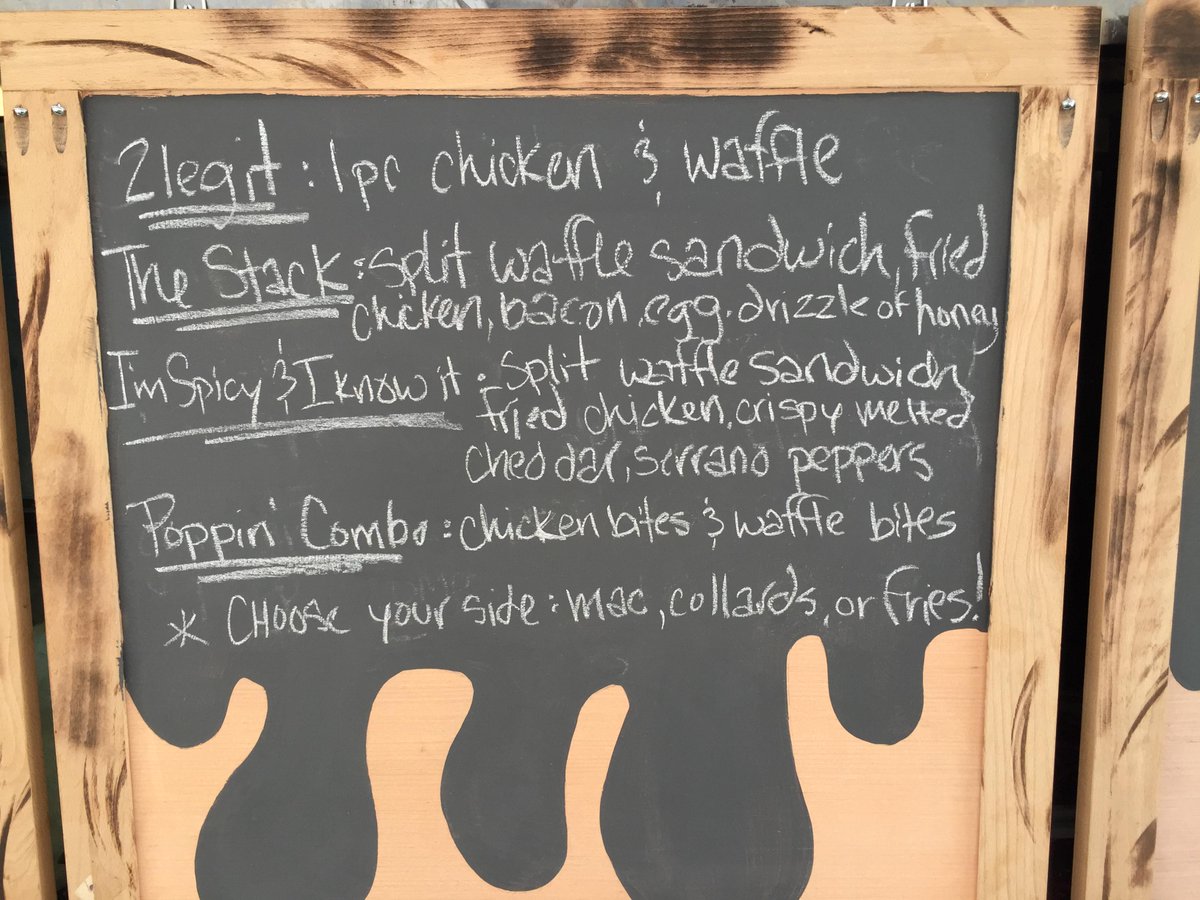 2legit: 1pc chicken & waffle
The Stack: split waffle sandwich, fried
chicken, bacon, egg, drizzle of honey
I'm Spicy & I know it: split waffle sandwich,
fried chicken, crispy melted
cheddar, serrano peppers
Poppin' Combo: chicken bites & waffle bites
* Choose your side: mac, collards, or fries!